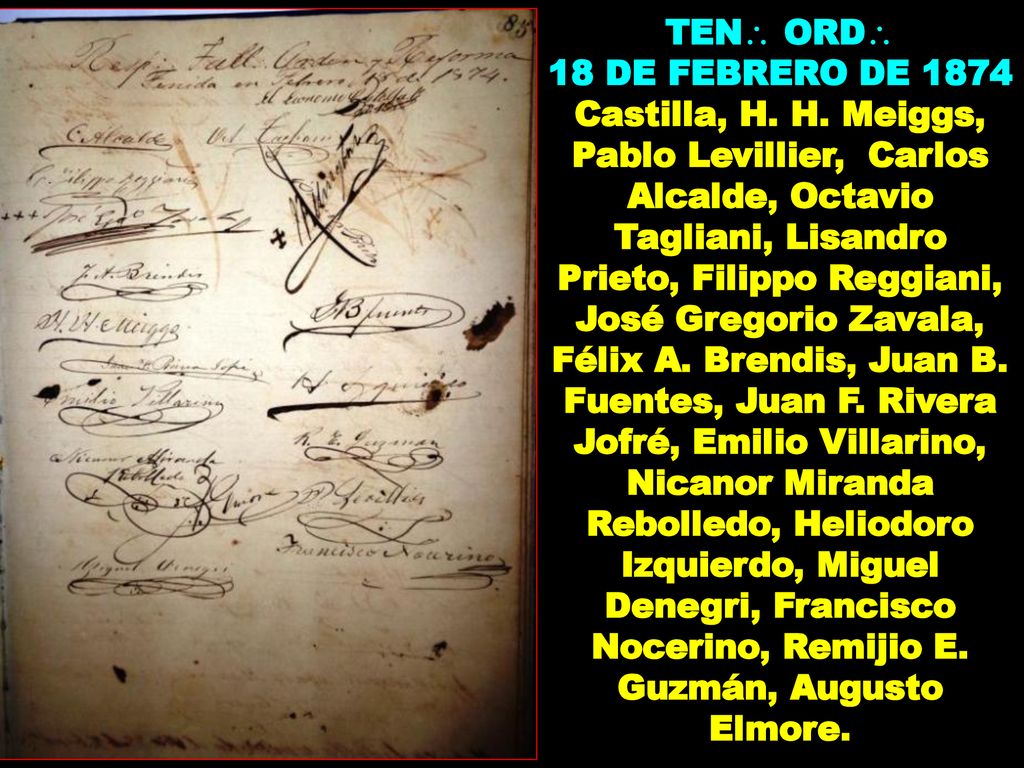 85
Resp∴ Tall∴ Orden y Reforma
Tenida en Febrero 18 de 1874.
C. Alcalde
Filippo Reggiani
F. A. Brendis
JB fuentes
H. H. Meiggs
Emilio Villarino
R. E. Guzman
Nicanor Miranda
Rebolledo
Miguel Denegri
Francisco Nocerino
TEN∴ ORD∴
18 DE FEBRERO DE 1874
Castilla, H. H. Meiggs,
Pablo Levillier, Carlos
Alcalde, Octavio
Tagliani, Lisandro
Prieto, Filippo Reggiani,
José Gregorio Zavala,
Félix A. Brendis, Juan B.
Fuentes, Juan F. Rivera
Jofré, Emilio Villarino,
Nicanor Miranda
Rebolledo, Heliodoro
Izquierdo, Miguel
Denegri, Francisco
Nocerino, Remijio E.
Guzmán, Augusto
Elmore.